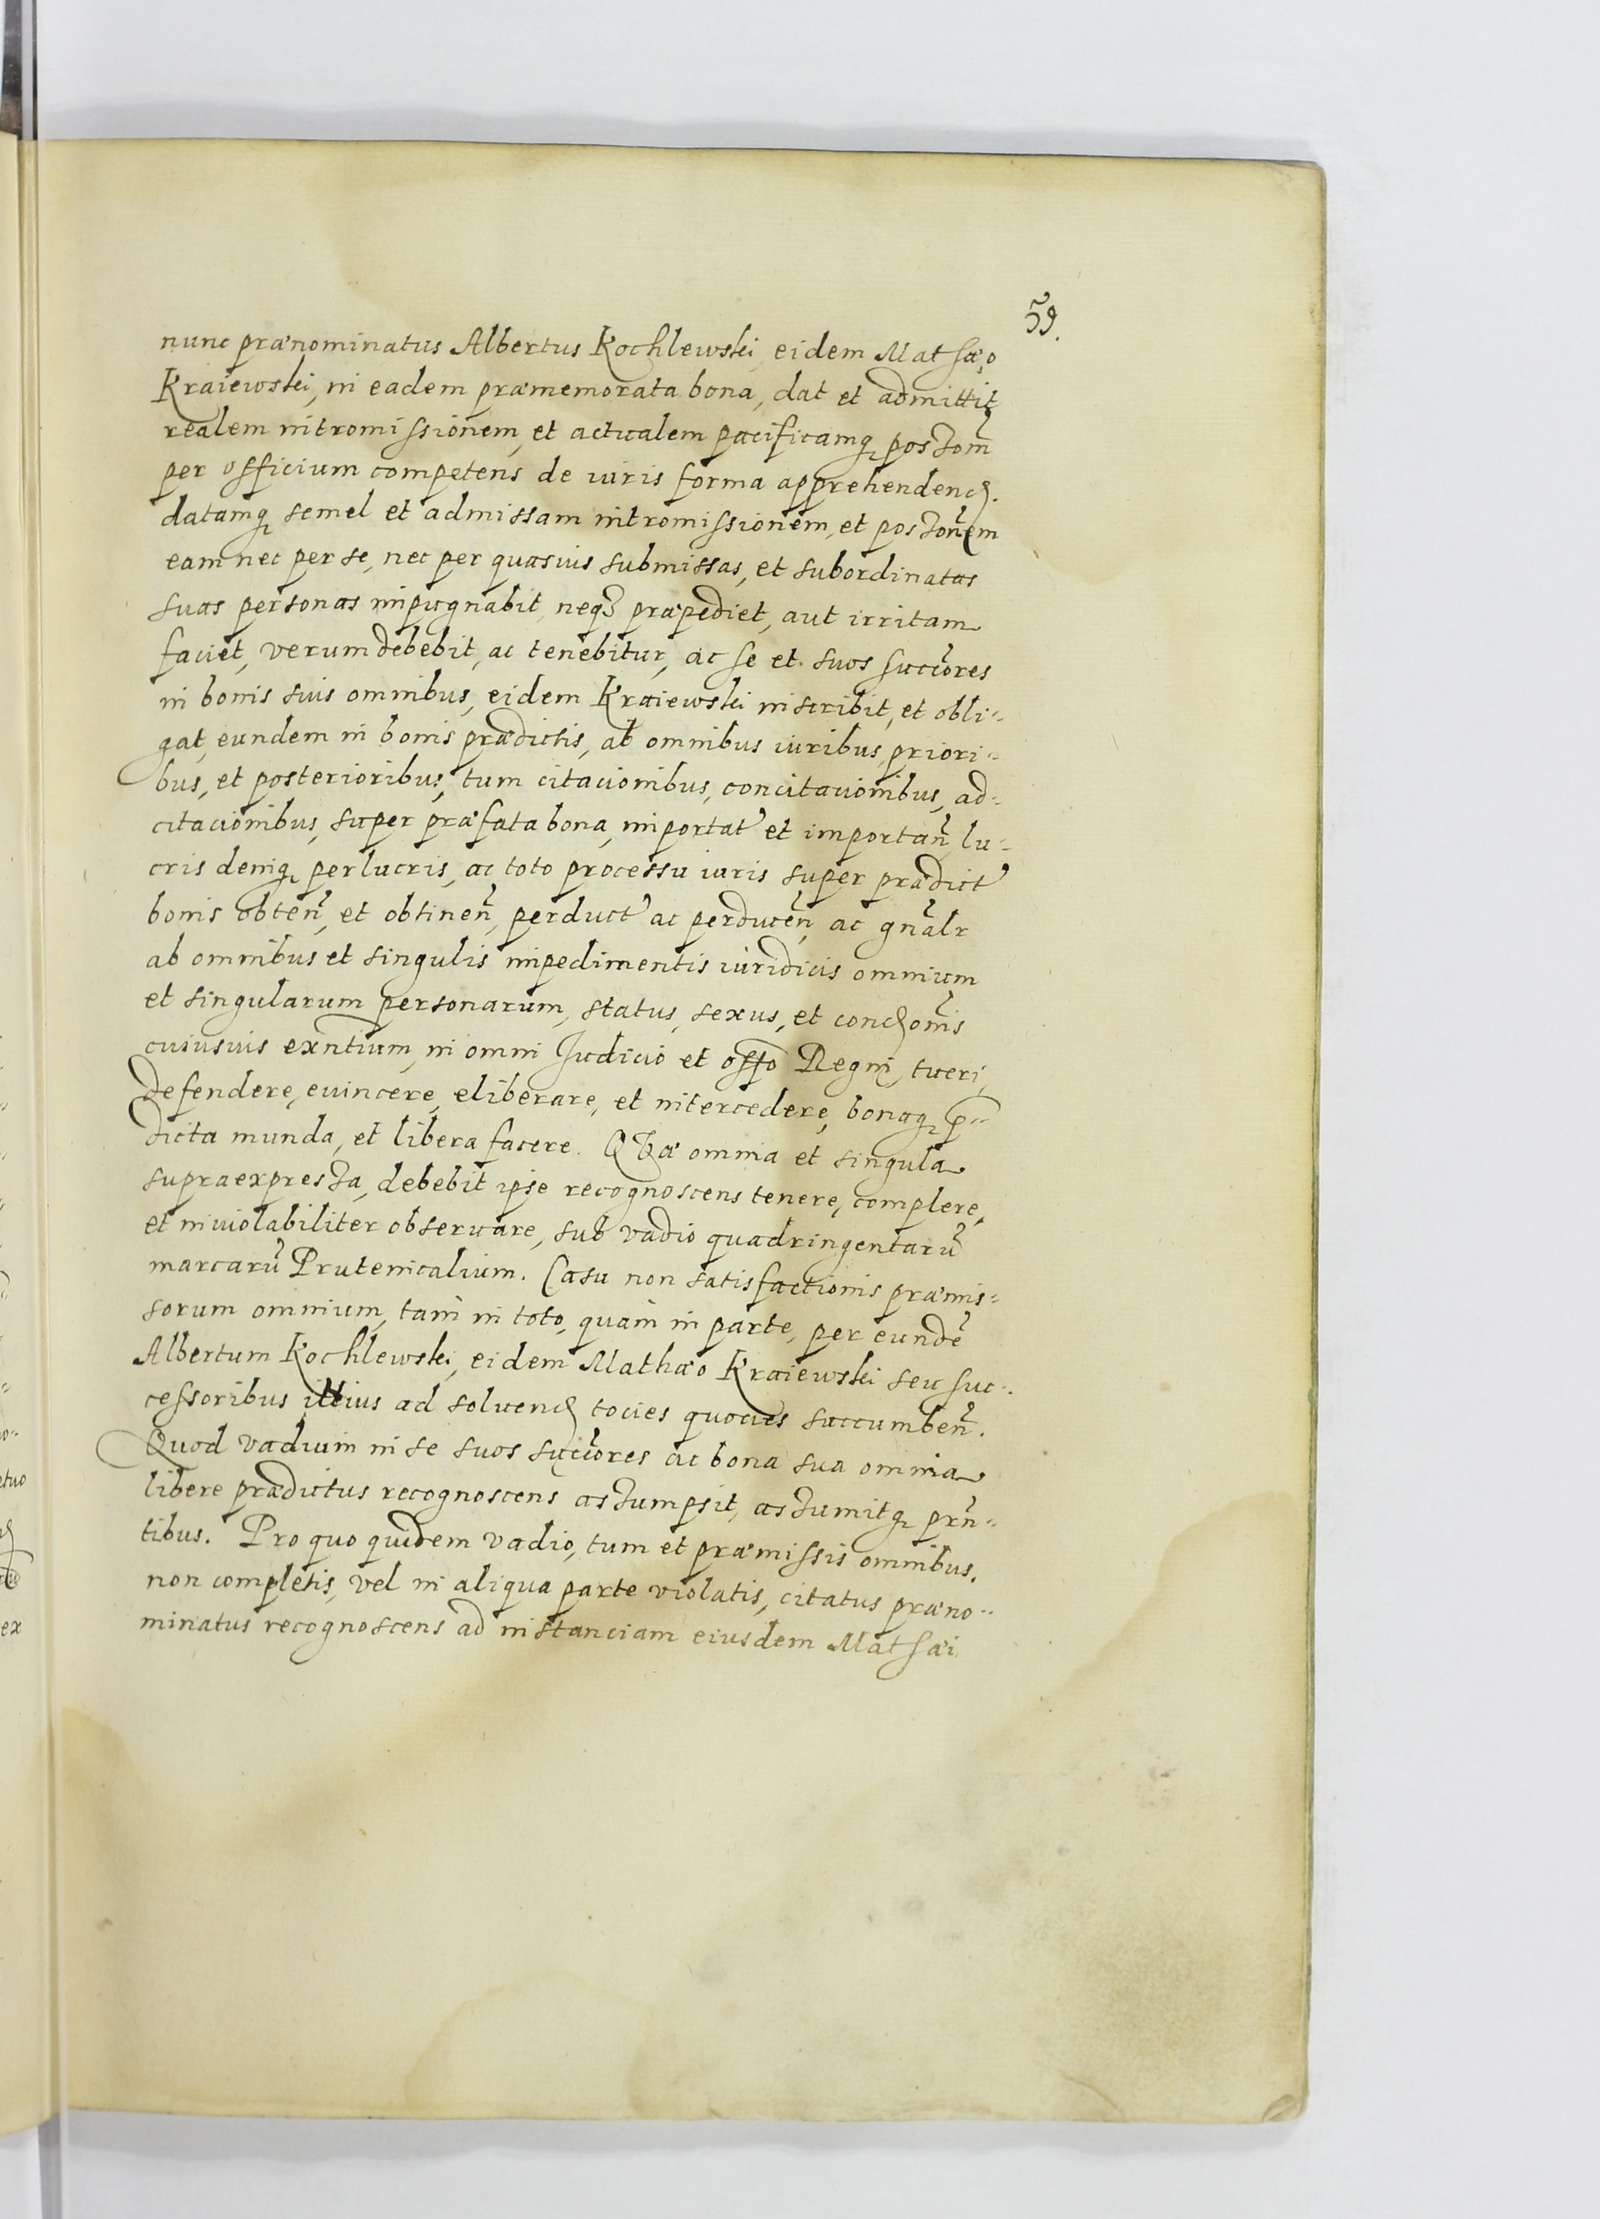 59.
nunc prænominatus Albertus Kochlewski, eidem Mathæo
Kraiewski, in eadem præmemorata bona, dat et admittit
realem intromissionem, et actualem pacificamq; possom̃
per officium competens de iuris forma apprehenden̄.
datamq; semel et admissam intromissionem, et possonẽm
eam nec per se, nec per quasuis submissas, et subordinatas
suas personas impugnabit, neq; præpediet, aut irritam
faciet, verum debebit, ac tenebitur, ac se et suos succõres
in bonis suis omnibus, eidem Kraiewski inscribit, et obli-
gat, eundem in bonis prædictis, ab omnibus iuribus, priori-
bus, et posterioribus, tum citacionibus, concitacionibus, ad-
citacionibus, super præfata bona, importat' et importan̄, lu-
cris deniq; perlucris, ac toto processu iuris super prædict'
bonis obten̄, et obtinen̄, perduct' ac perducen̄, ac gn̄alr
ab omnibus et singulis impedimentis iuridicis omnium
et singularum personarum, status, sexus, et condõnis
cuiusuis exn̄tium, in omni Judicio et offo Regni, tueri,
defendere, euincere, eliberare, et intercedere, bonaq; p-
dicta munda, et libera facere. QVæ omnia et singula
supraexpressa, debebit ipse recognoscens tenere, complere,
et inuiolabiliter obseruare, sub vadio quadringentarũ
marcarũ Prutenicalium. Casu non satisfactionis præmis-
sorum omnium, tam in toto, quam in parte, per eundẽ
Albertum Kochlewski, eidem Mathæo Kraiewski seu suc-
cessoribus illius ad soluend̄ tocies quocies succumben̄.
Quod vadium in se suos succõres ac bona sua omnia
libere prædictus recognoscens assumpsit, assumitq; prñ-
tibus. Pro quo quidem vadio, tum et præmissis omnibus.
non completis, vel in aliqua parte violatis, citatus præno-
minatus recognoscens ad instanciam eiusdem Mathæi